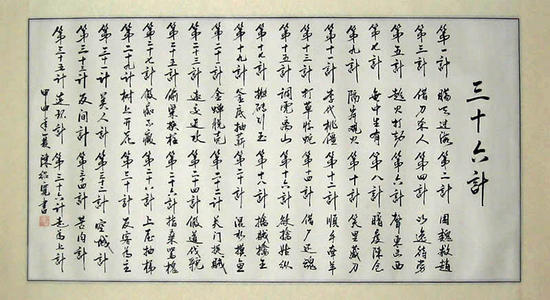 三十六計
第一計 瞞天过海 第二計 围魏救趙
第三計 借刀杀人 第四計 以逸待劳
第五計 趁火打劫 第六計 聲東击西
第七計 無中生有 第八計 暗度陳仓
第九計 隔岸观火 第十計 笑里藏刀
第十一計 李代桃僵 第十二計 順手牵羊
第十三計 打草惊蛇 第十四計 借尸还魂
第十五計 調虎离山 第十六計 欲擒姑纵
第十七計 抛砖引玉 第十八計 擒賊擒王
第十九計 釜底抽薪 第二十計 混水摸鱼
第二十一計 金蝉脱壳 第二十二計 关门捉賊
第二十三計 远交近攻 第二十四計 假道伐虢
第二十五計 偷梁换柱 第二十六計 指桑骂槐
第二十七計 假痴不癲 第二十八計 上屋抽梯
第二十九計 树上开花 第三十計 反客為主
第三十一計 美人計 第三十二計 空城計
第三十三計 反间計 第三十四計 苦肉計
第三十五計 连环計 第三十六計 走為上計
甲申年夏 陳 書